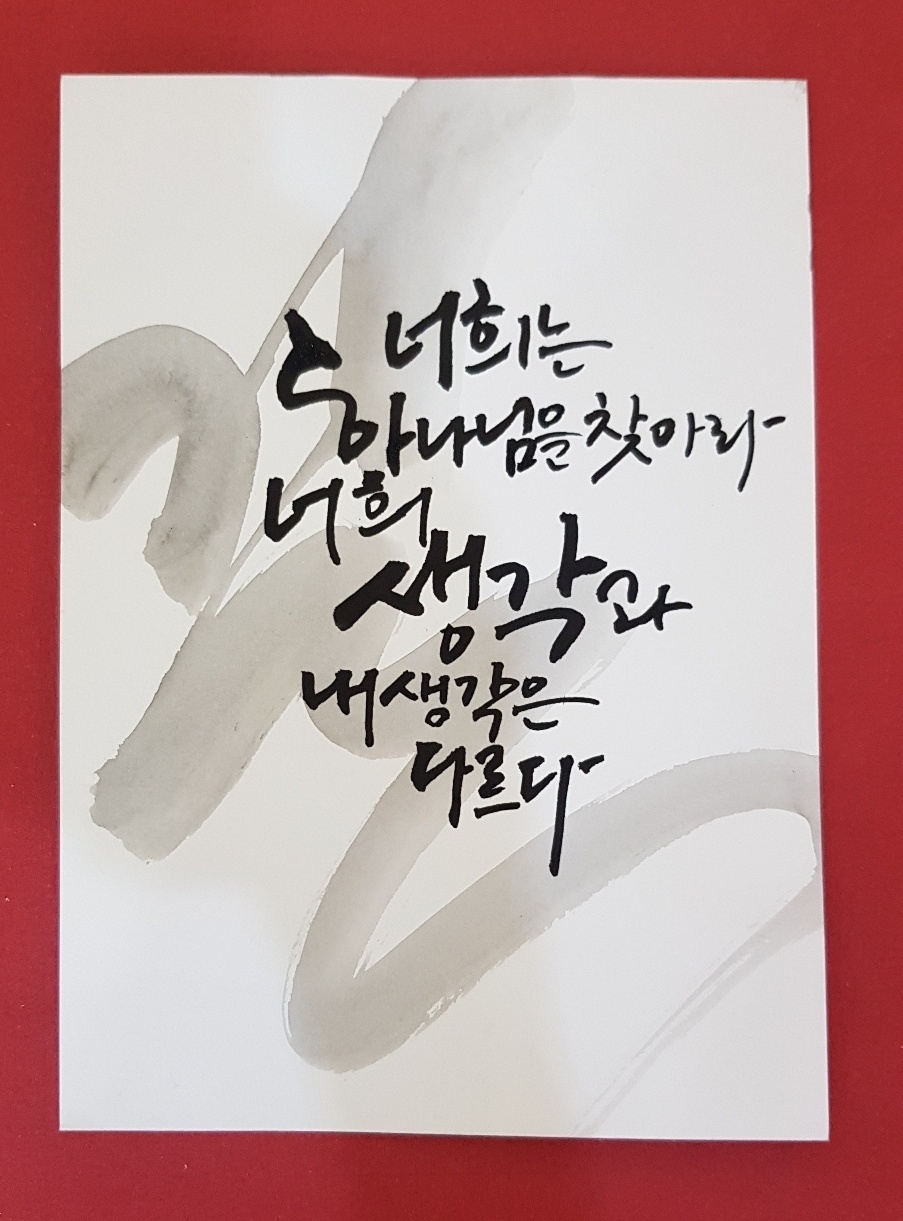 너희는
하나님을 찾아라
너희
생각과
내 생각은
다르다